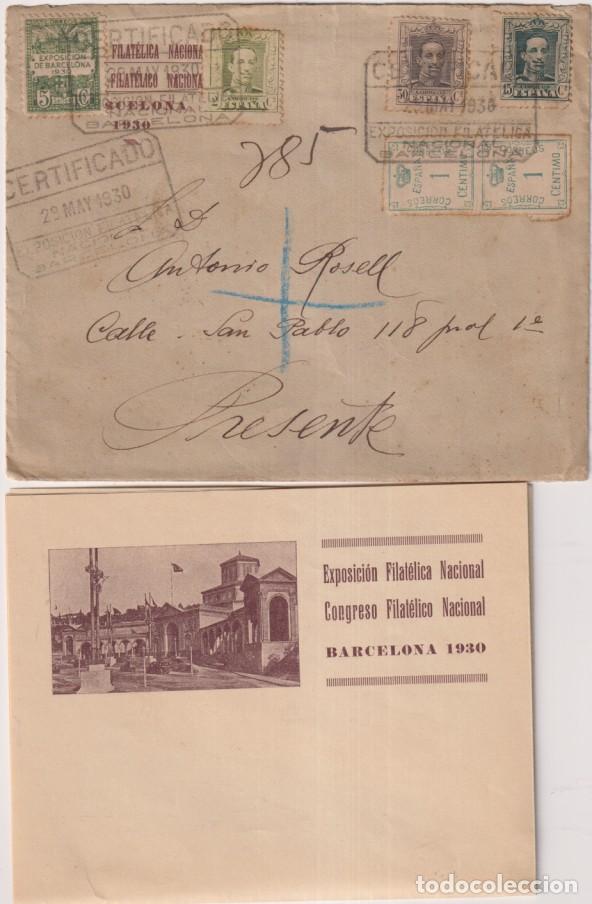 EXPOSICION
DE BARCELONA
1930
5 C
CERTIFICADO
FILATÉLICA NACIONA
MAY 1930
FILATÉLICO NACIONA
SCELONA
NACIONAL
BARCELONA
1930
ESPAÑA
50 ESPAÑA C
15 ESPAÑA C
MAY 1930
EXPOSICION FILATELICA
CORREOS
ESPAÑA
1
CENTIMO
CORREOS
ESPAÑA
1
CENTIMO
CERTIFICADO
28 MAY 1930
EXPOSICION FILATELICA
NACIONAL
BARCELONA
785
S. D
Antonio Rosell
Calle San Pablo 118 pral 1º
Presente
Exposición Filatélica Nacional
Congreso Filatélico Nacional
BARCELONA 1930
todocoleccion.net